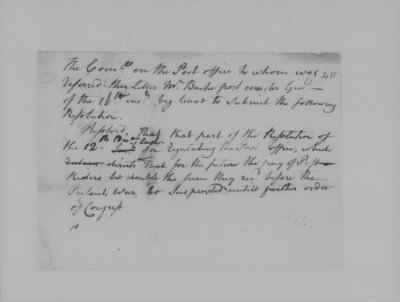 The Com.ee on the Post office to whom was
referred the Letter Mr Bache post master Genl
of the 16th inst. beg leave to submit the following
Resolution.
Resolved, That that part of the Resolution of
the 12. for regulating the Post office, which
directs That for the future the pay of Post
Riders be double the sum they recd. before the
Present War, be Suspended untill further order
of Congress